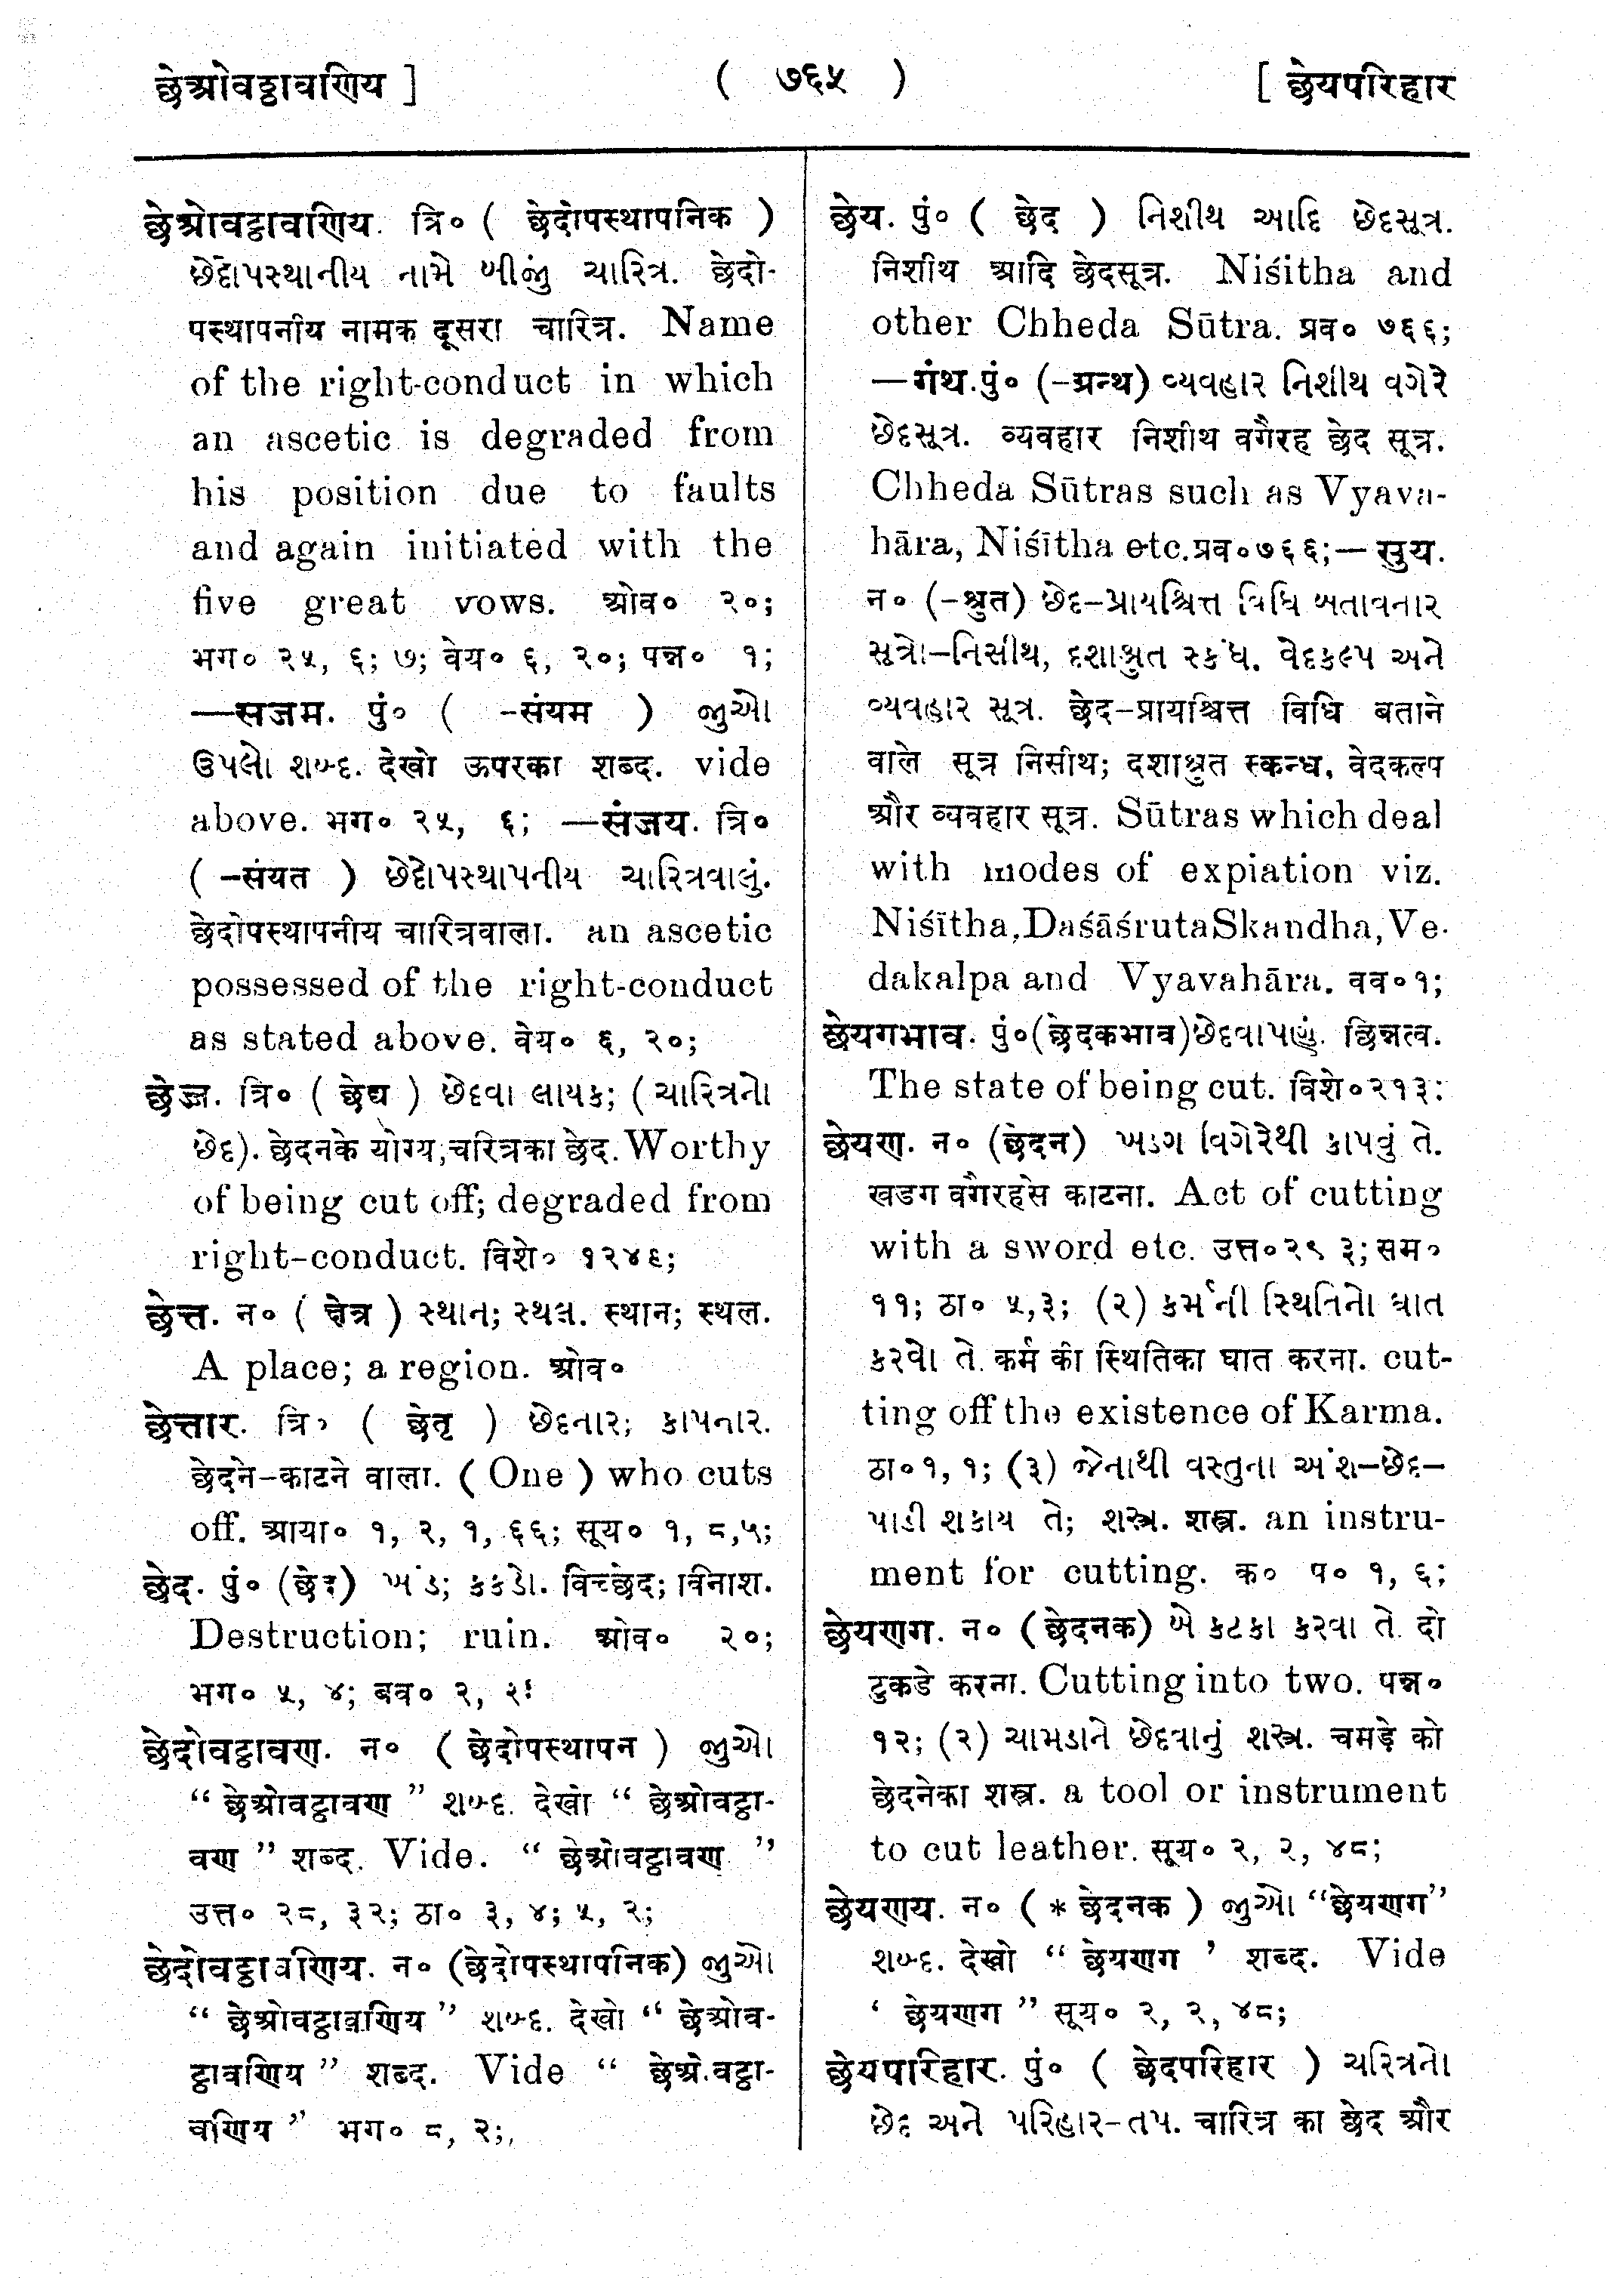 छेओवट्ठावणिय ]
( ७६५ )
[ छेयपरिहार
छेओवट्ठावणिय. त्रि० ( छेदोपस्थापनिक )
છેદોપસ્થાનીય નામે બીજું ચારિત્ર. छेदो-
पस्थापनीय नामक दूसरा चारित्र. Name
of the right-conduct in which
an ascetic is degraded from
his position due to faults
and again initiated with the
five great vows. ओव० २०;
भग० २५, ६; ७; वेय० ६, २०; पन्न० १;
—सजम. पुं० ( -संयम ) જુઓ
ઉપલો શબ્દ. देखो ऊपरका शब्द. vide
above. भग० २५, ६; —संजय. त्रि०
( -संयत ) છેદોપસ્થાપનીય ચારિત્રવાલું.
छेदोपस्थापनीय चारित्रवाला. an ascetic
possessed of the right-conduct
as stated above. वेय० ६, २०;
छेज्ज. त्रि० ( छेद्य ) છેદવા લાયક; ( ચારિત્રનો
છેદ). छेदनके योग्य; चरित्रका छेद. Worthy
of being cut off; degraded from
right-conduct. विशे० १२४९;
छेत्त. न० ( क्षेत्र ) સ્થાન; સ્થલ. स्थान; स्थल.
A place; a region. ओव०
छेत्तार. त्रि० ( छेतृ ) છેદનાર; કાપનાર.
छेदने-काटने वाला. ( One ) who cuts
off. आया० १, २, १, ६६; सूय० १, ८,५;
छेद. पुं० (छेद) ખંડ; કકડો. विच्छेद; विनाश.
Destruction; ruin. ओव० २०;
भग० ५, ४; बव० २, २;
छेदोवट्ठावण. न० ( छेदोपस्थापन ) જુઓ
“ छेओवट्ठावण ” શબ્દ. देखो “ छेओवट्ठा-
वण ” शब्द. Vide. “ छेओवट्ठावण ”
उत्त० २८, ३२; ठा० ३, ४; ५, २;
छेदोवट्ठावणिय. न० (छेदोपस्थापनिक) જુઓ
“ छेओवट्ठावणिय ” શબ્દ. देखो “ छेओव-
ट्ठावणिय ” शब्द. Vide “ छेओवट्ठा-
वणिय ” भग० ८, २;
छेय. पुं० ( छेद ) નિશીથ આદિ છેદસૂત્ર.
निशीथ आदि छेदसूत्र. Niśitha and
other Chheda Sūtra. प्रव० ७६६;
—गंथ. पुं० (-ग्रन्थ) વ્યવહાર નિશીથ વગેરે
છેદસૂત્ર. व्यवहार निशीथ वगैरह छेद सूत्र.
Chheda Sūtras such as Vyava-
hāra, Niśītha etc. प्रव० ७६६; —सुय.
न० (-श्रुत) છેદ-પ્રાયશ્ચિત્ત વિધિ બતાવનાર
સૂત્રો-નિસીથ, દશાશ્રુત સ્કંધ, વેદકલ્પ અને
વ્યવહાર સૂત્ર. छेद-प्रायश्चित्त विधि बताने
वाले सूत्र निसीथ; दशाश्रुत स्कन्ध, वेदकल्प
और व्यवहार सूत्र. Sūtras which deal
with modes of expiation viz.
Niśītha, Daśāśruta Skandha, Ve-
dakalpa and Vyavahāra. वव० १;
छेयगभाव. पुं०(छेदकभाव) છેદવાપણું. छिन्नत्व.
The state of being cut. विशे० २१३:
छेयण. न० (छेदन) ખડગ વિગેરેથી કાપવું તે.
खडग वगैरहसे काटना. Act of cutting
with a sword etc. उत्त० २९ ३; सम०
११; ठा० ५,३; (२) કર્મની સ્થિતિનો ઘાત
કરવો તે. कर्म की स्थितिका घात करना. cut-
ting off the existence of Karma.
ठा० १, १; (३) જેનાથી વસ્તુના અંશ-છેદ-
પાડી શકાય તે; શસ્ત્ર. शस्त्र. an instru-
ment for cutting. क० प० १, ६;
छेयणग. न० (छेदनक) બે કટકા કરવા તે. दो
टुकडे करना. Cutting into two. पन्न०
१२; (२) ચામડાને છેદવાનું શસ્ત્ર. चमड़े को
छेदनेका शस्त्र. a tool or instrument
to cut leather. सूय० २, २, ४८;
छेयणय. न० ( * छेदनक ) જુઓ “छेयणग”
શબ્દ. देखो “ छेयणग ’ शब्द. Vide
‘ छेयणग ” सूय० २, २, ४८;
छेयपारिहार. पुं० ( छेदपरिहार ) ચરિત્રનો
છેદ અને પરિહાર-તપ. चारित्र का छेद और